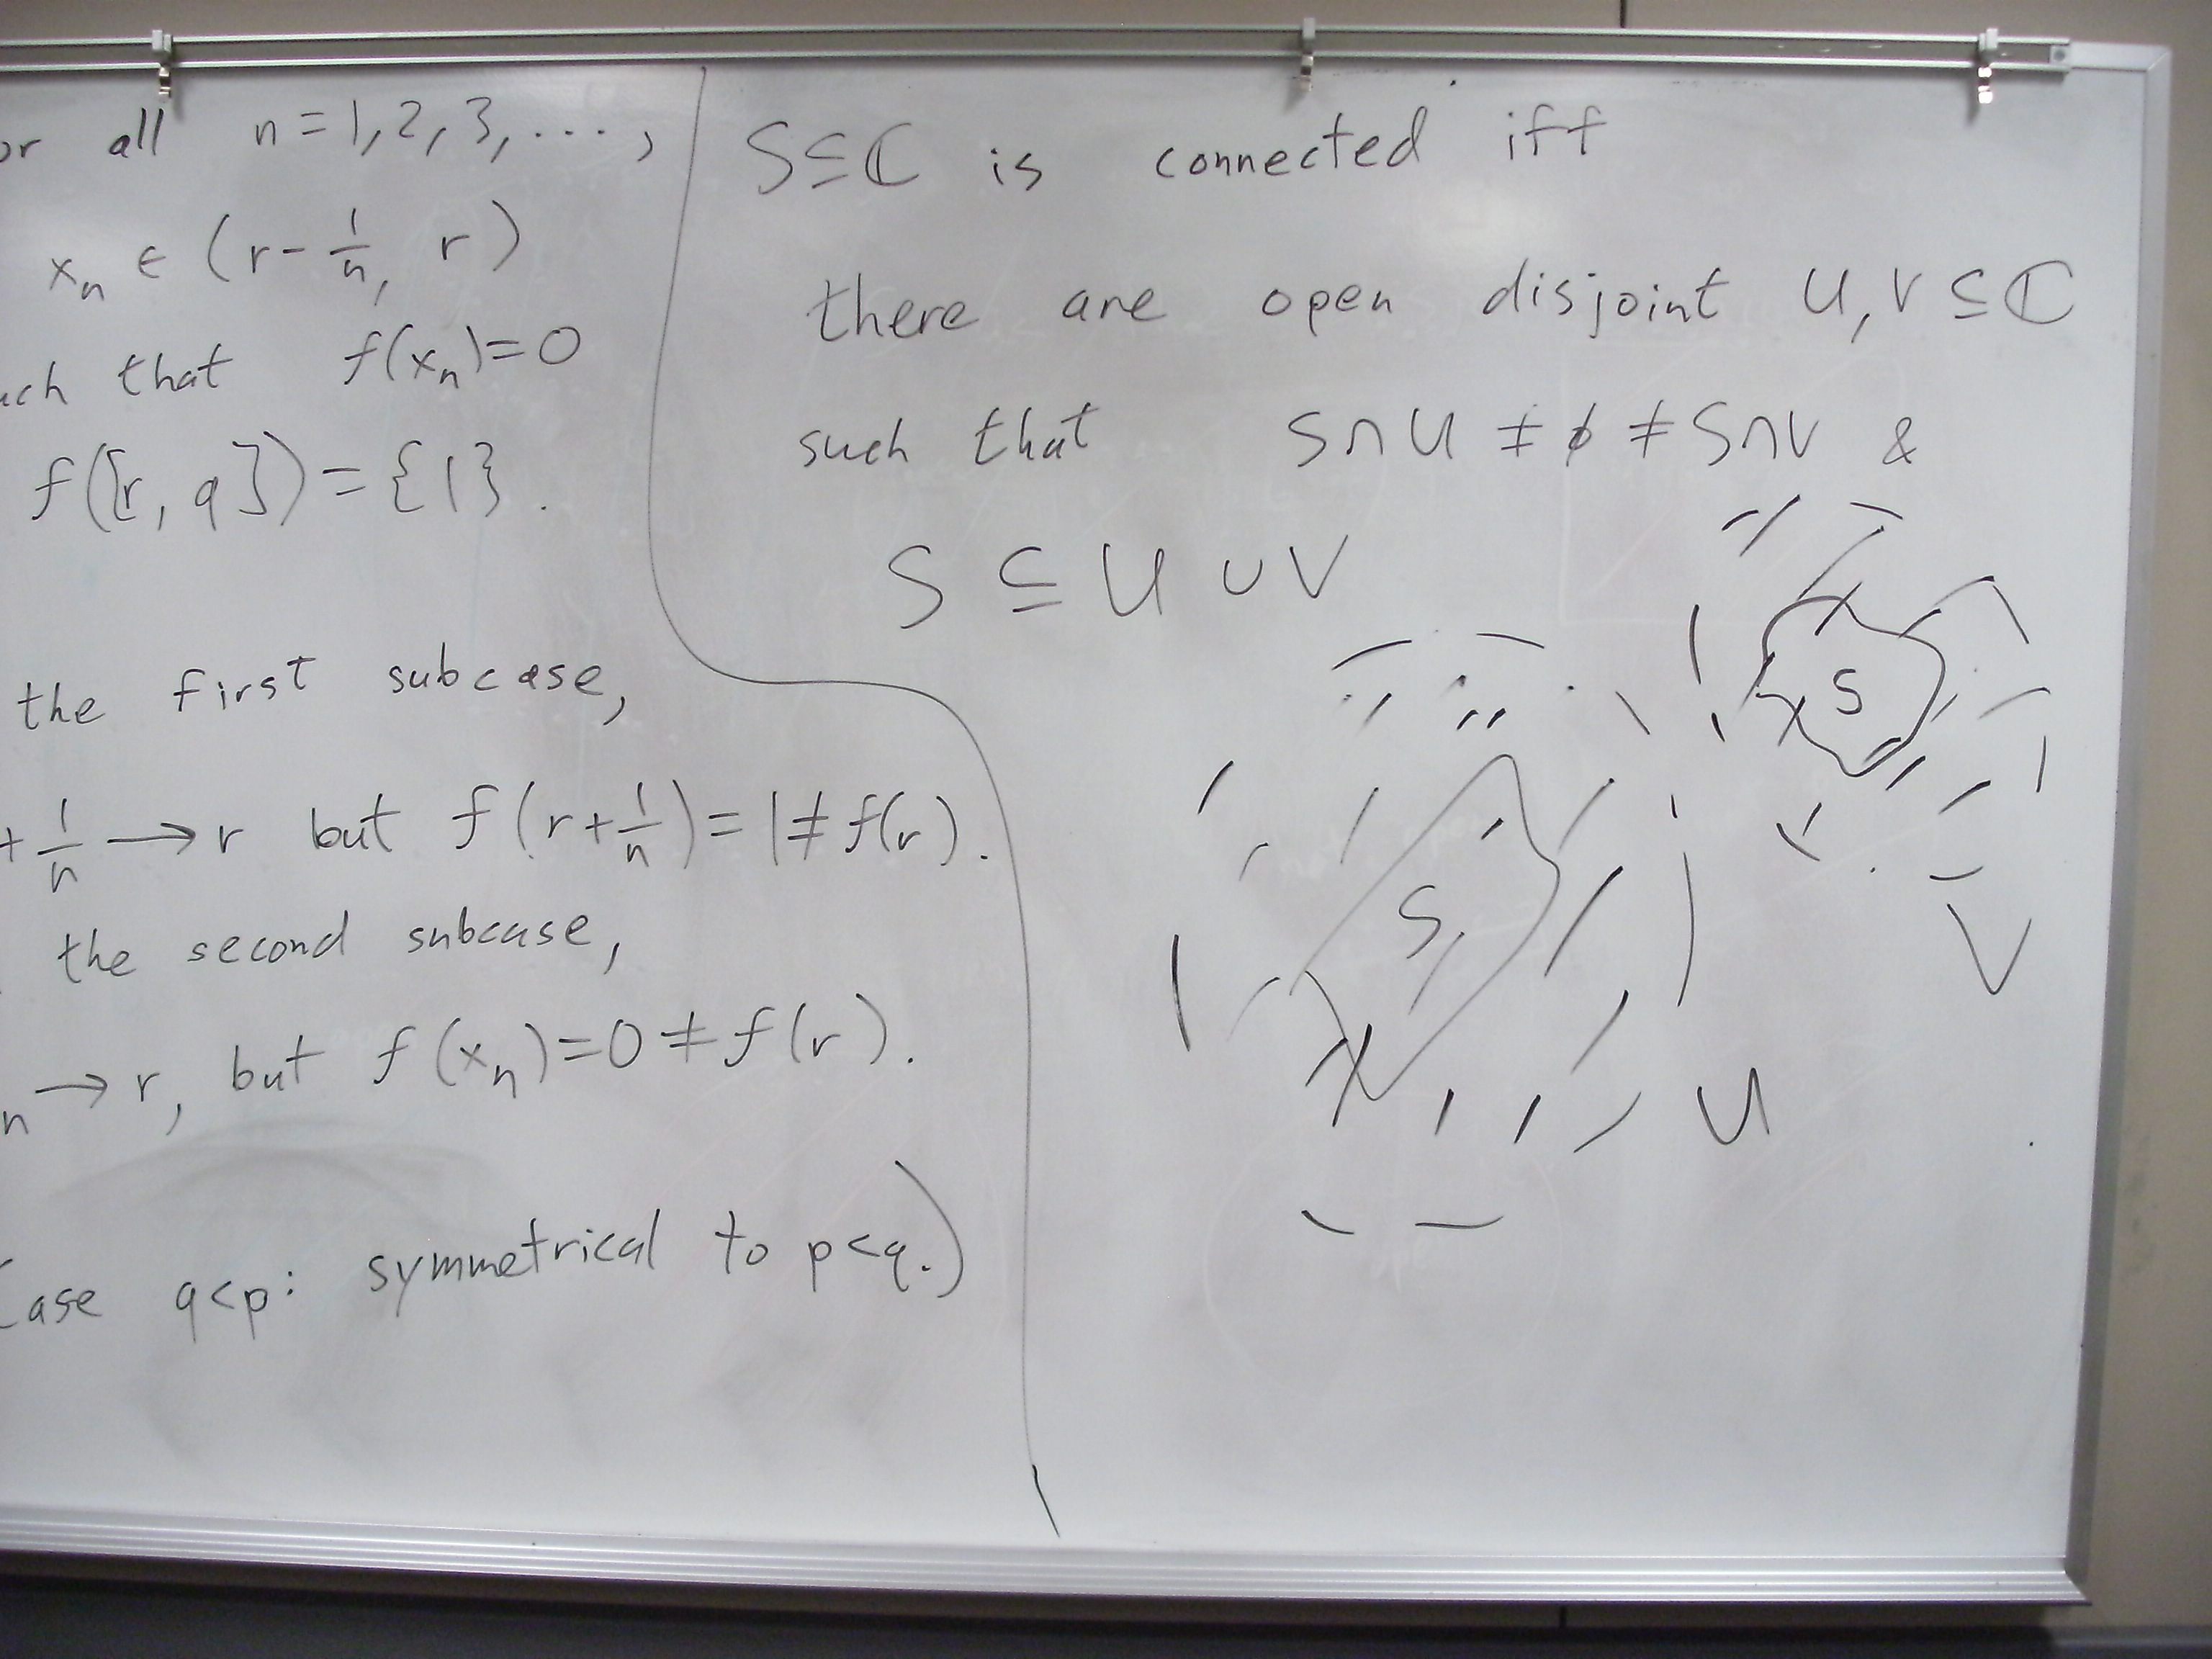 or all n=1,2,3,...,
xₙ ∈ (r-1/n, r)
uch that f(xₙ)=0
f([r,q])={1}.
the first subcase,
+1/n → r but f(r+1/n)=1≠f(r).
the second subcase,
n → r, but f(xₙ)=0≠f(r).
Case q<p: symmetrical to p<q.)
S⊆ℂ is connected iff
there are open disjoint U,V⊆ℂ
such that S∩U ≠ ∅ ≠ S∩V &
S ⊆ U ∪ V
S
S
V
U